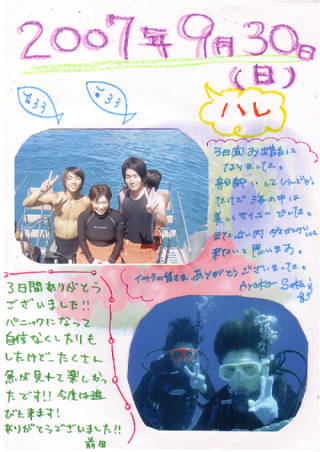 2007年9月30日
(日)
ハレ
3日間お世話に
なりました。
船酔いしてしんどかっ
たけど海の中は
楽しかったです。
また近い内
来たいと思います。
ありがとうございました。
3日間ありがとう
ございました!!
パニックになって
自信なくしたりも
したけど、たくさん
魚が見れて楽しかっ
たです!! 今度は遊
びに来ます!
ありがとうございました!!
前田